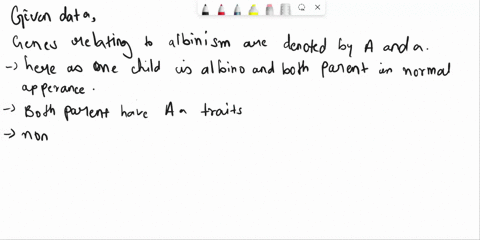 Given data,
Genes relating to albinism are denoted by A and a.
-> here as one child is albino and both parent in normal
apperance.
-> Both parent have Aa traits
-> non